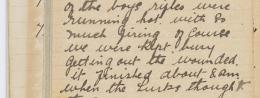 of the boys rifles were
7 running hot with so
much firing of course
we were kept busy
getting out the wounded,
it finished about 8 am
when the Turks thought